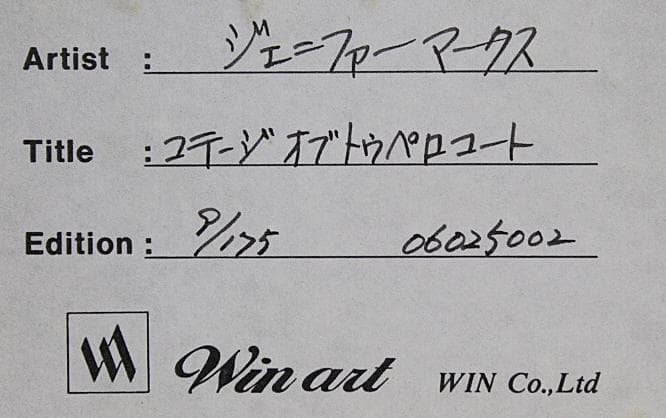 Artist : ジェニファー マークス
Title : コテージ オブ トゥペロ コート
Edition : 9/175 06025002
Win art WIN Co.,Ltd